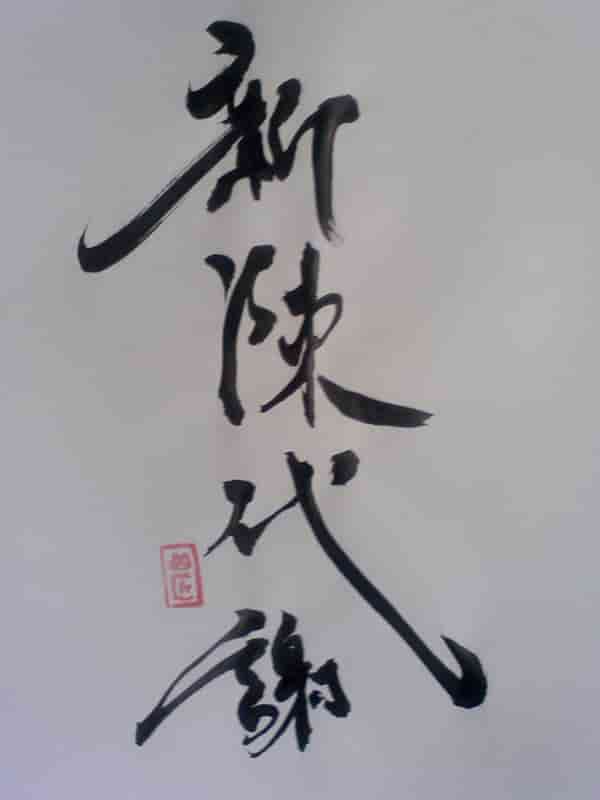 新陳代謝